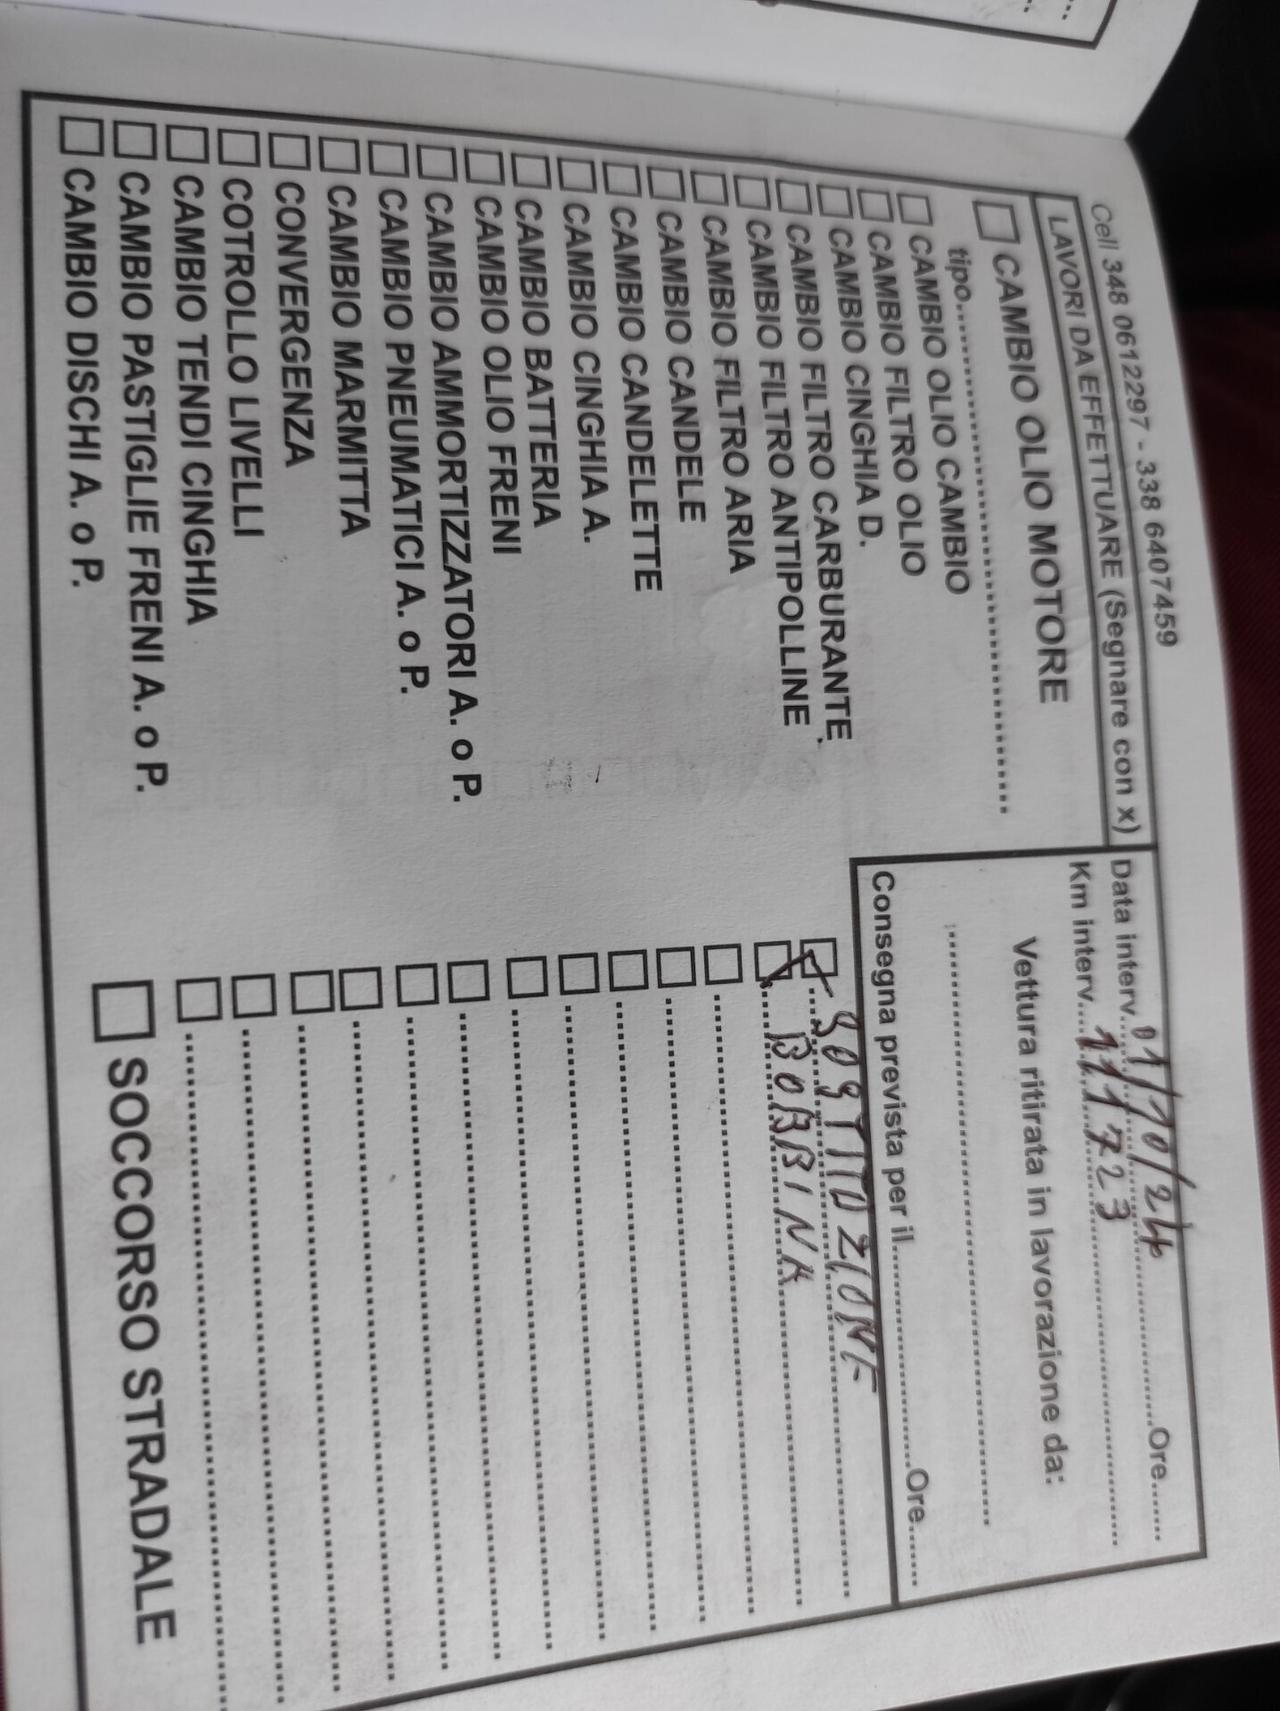 Cell 348 0612297 - 338 6407459
LAVORI DA EFFETTUARE (Segnare con x)
CAMBIO OLIO MOTORE
tipo
CAMBIO OLIO CAMBIO
CAMBIO FILTRO OLIO
CAMBIO CINGHIA D.
CAMBIO FILTRO CARBURANTE
CAMBIO FILTRO ANTIPOLLINE
CAMBIO FILTRO ARIA
CAMBIO CANDELE
CAMBIO CANDELETTE
CAMBIO CINGHIA A.
CAMBIO BATTERIA
CAMBIO OLIO FRENI
CAMBIO AMMORTIZZATORI A. o P.
CAMBIO PNEUMATICI A. o P.
CAMBIO MARMITTA
CONVERGENZA
COTROLLO LIVELLI
CAMBIO TENDI CINGHIA
CAMBIO PASTIGLIE FRENI A. o P.
CAMBIO DISCHI A. o P.
Data interv. 01/10/24 Ore
Km interv. 111723
Vettura ritirata in lavorazione da:
Consegna prevista per il Ore
SOSTITUZIONE
BOBBINA
SOCCORSO STRADALE